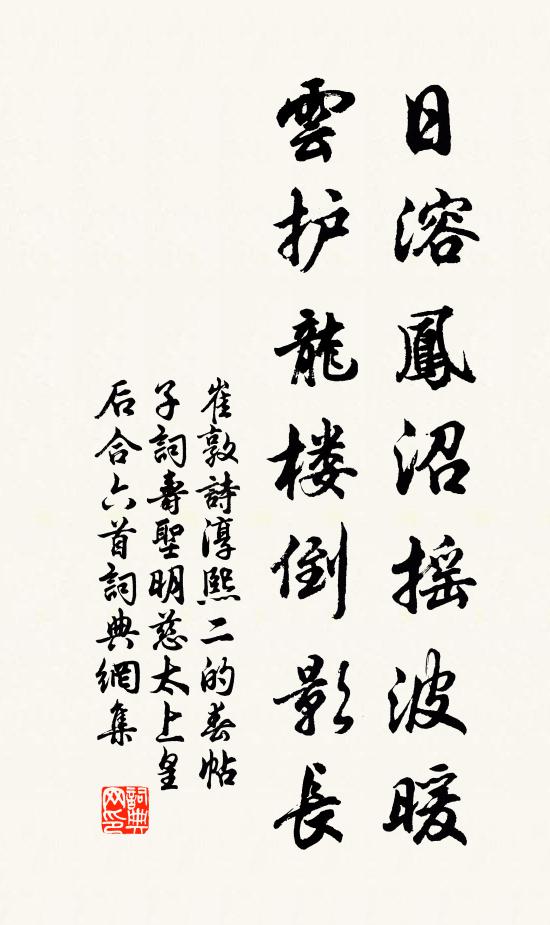 日溶鳳沼摇波暖
雲护龍楼倒影長
崔敦詩淳熙二的春帖
子詞壽聖明慈太上皇
后合六首詞典網集
詞典
网印